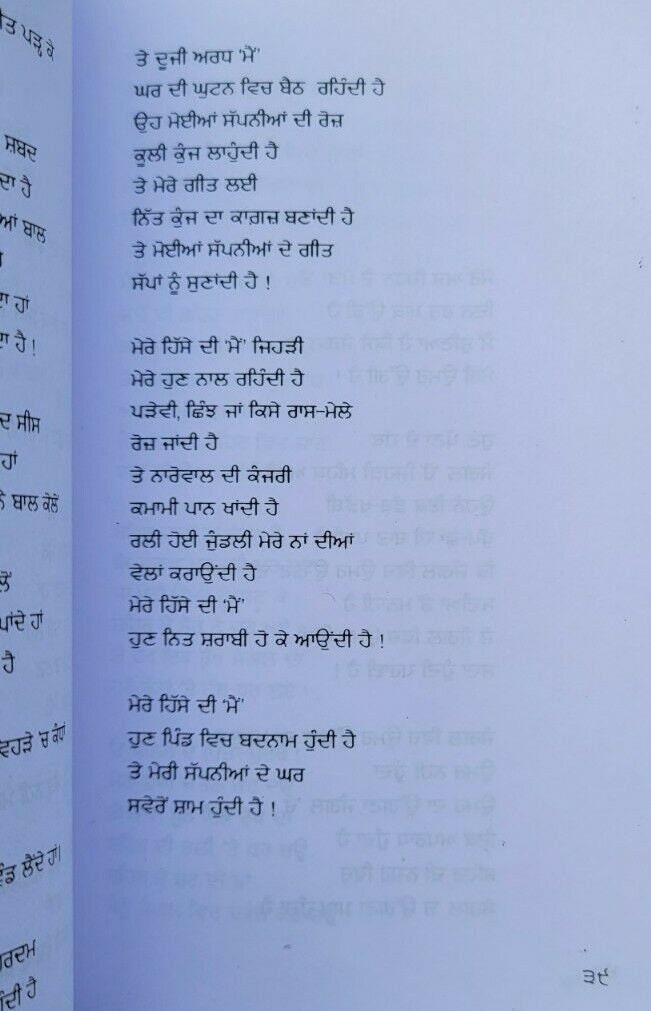 ੜ ਪੜ੍ਹ ਕੇ
ਸ਼ਬਦ
ਦਾ ਹੈ
ਆਂ ਬਾਲ
ਹਾਂ
ਹੈ !
ਸੀਸ
ਹਾਂ
ਬਾਲ ਕੋਲੋਂ
ਪਾਂਦੇ ਹਾਂ
ਹੈ
ਵਿਹੜੇ 'ਚ ਕੰਧਾਂ
ਲੈਂਦੇ ਹਾਂ।
ਤੇ ਦੂਜੀ ਅਰਧ 'ਮੈਂ'
ਘਰ ਦੀ ਘੁਟਨ ਵਿਚ ਬੈਠ ਰਹਿੰਦੀ ਹੈ
ਉਹ ਮੋਈਆਂ ਸੱਪਨੀਆਂ ਦੀ ਰੋਜ਼
ਕੂਲੀ ਕੁੰਜ ਲਾਹੁੰਦੀ ਹੈ
ਤੇ ਮੇਰੇ ਗੀਤ ਲਈ
ਨਿੱਤ ਕੁੰਜ ਦਾ ਕਾਗ਼ਜ਼ ਬਣਾਂਦੀ ਹੈ
ਤੇ ਮੋਈਆਂ ਸੱਪਨੀਆਂ ਦੇ ਗੀਤ
ਸੱਪਾਂ ਨੂੰ ਸੁਣਾਂਦੀ ਹੈ !
ਮੇਰੇ ਹਿੱਸੇ ਦੀ 'ਮੈਂ' ਜਿਹੜੀ
ਮੇਰੇ ਹੁਣ ਨਾਲ ਰਹਿੰਦੀ ਹੈ
ਪੜੇਵੀ, ਛਿੰਝ ਜਾਂ ਕਿਸੇ ਰਾਸ-ਮੇਲੇ
ਰੋਜ਼ ਜਾਂਦੀ ਹੈ
ਤੇ ਨਾਰੋਵਾਲ ਦੀ ਕੰਜਰੀ
ਕਮਾਮੀ ਪਾਨ ਖਾਂਦੀ ਹੈ
ਰਲੀ ਹੋਈ ਜੁੰਡਲੀ ਮੇਰੇ ਨਾਂ ਦੀਆਂ
ਵੇਲਾਂ ਕਰਾਉਂਦੀ ਹੈ
ਮੇਰੇ ਹਿੱਸੇ ਦੀ 'ਮੈਂ'
ਹੁਣ ਨਿਤ ਸ਼ਰਾਬੀ ਹੋ ਕੇ ਆਉਂਦੀ ਹੈ !
ਮੇਰੇ ਹਿੱਸੇ ਦੀ 'ਮੈਂ'
ਹੁਣ ਪਿੰਡ ਵਿਚ ਬਦਨਾਮ ਹੁੰਦੀ ਹੈ
ਤੇ ਮੇਰੀ ਸੱਪਨੀਆਂ ਦੇ ਘਰ
ਸਵੇਰੋਂ ਸ਼ਾਮ ਹੁੰਦੀ ਹੈ !
੩੯